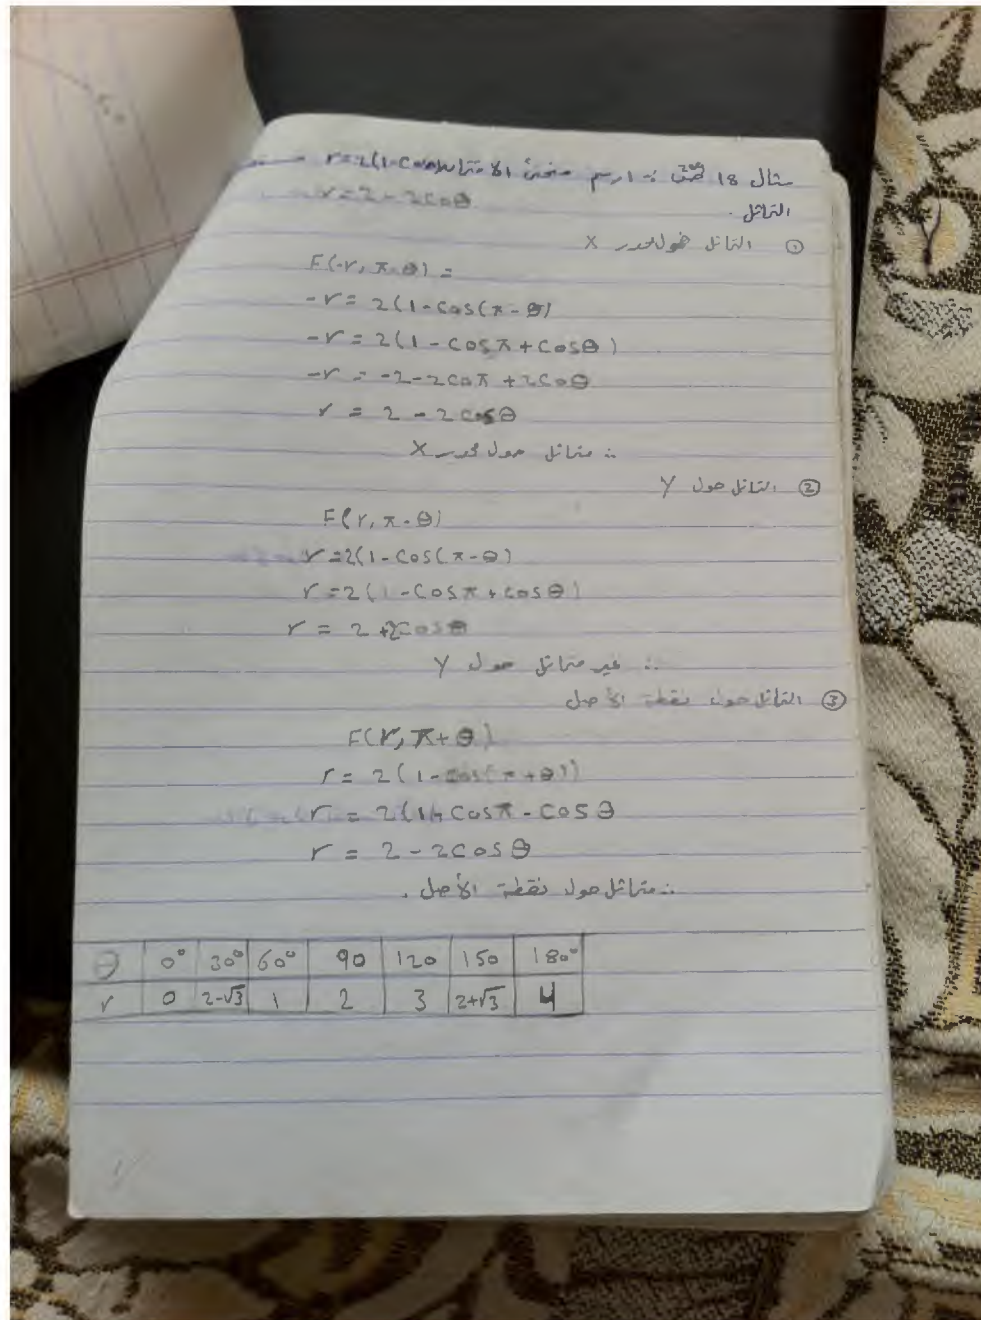 مثال 18 ص 209 : ارسم منحنى الاقتران r=2(1-Cosθ)
r=2-2Cosθ
التماثل .
① التماثل حول محور X
F(-r, π-θ) =
-r = 2(1-Cos(π-θ)
-r = 2(1-Cosπ+Cosθ)
-r = -2-2Cosπ+2Cosθ
r = 2-2Cosθ
∴ متماثل حول محور X
② التماثل حول Y
F(r, π-θ)
r=2(1-Cos(π-θ)
r=2(1-Cosπ+Cosθ)
r = 2+2Cosθ
∴ غير متماثل حول Y
③ التماثل حول نقطة الأصل
F(r, π+θ)
r = 2(1-Cos(π+θ))
r = 2(1+Cosπ-Cosθ
r = 2-2Cosθ
∴ متماثل حول نقطة الأصل .
θ 0° 30° 60° 90 120 150 180°
r 0 2-√3 1 2 3 2+√3 4